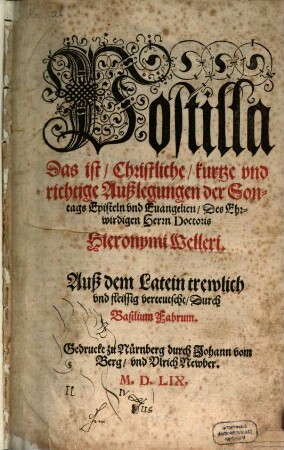 Postilla
Das ist / Christliche / kurtze vnd
richtige Außlegungen der Son-
tags Episteln vnd Euangelien / Des Ehr-
wirdigen Herrn Doctoris
Hieronymi Welleri.
Auß dem Latein trewlich
vnd fleissig verteutscht / Durch
Basilium Fabrum.
Gedruckt zu Nürnberg durch Johann vom
Berg / vnd Vlrich Newber.
M. D. LIX.